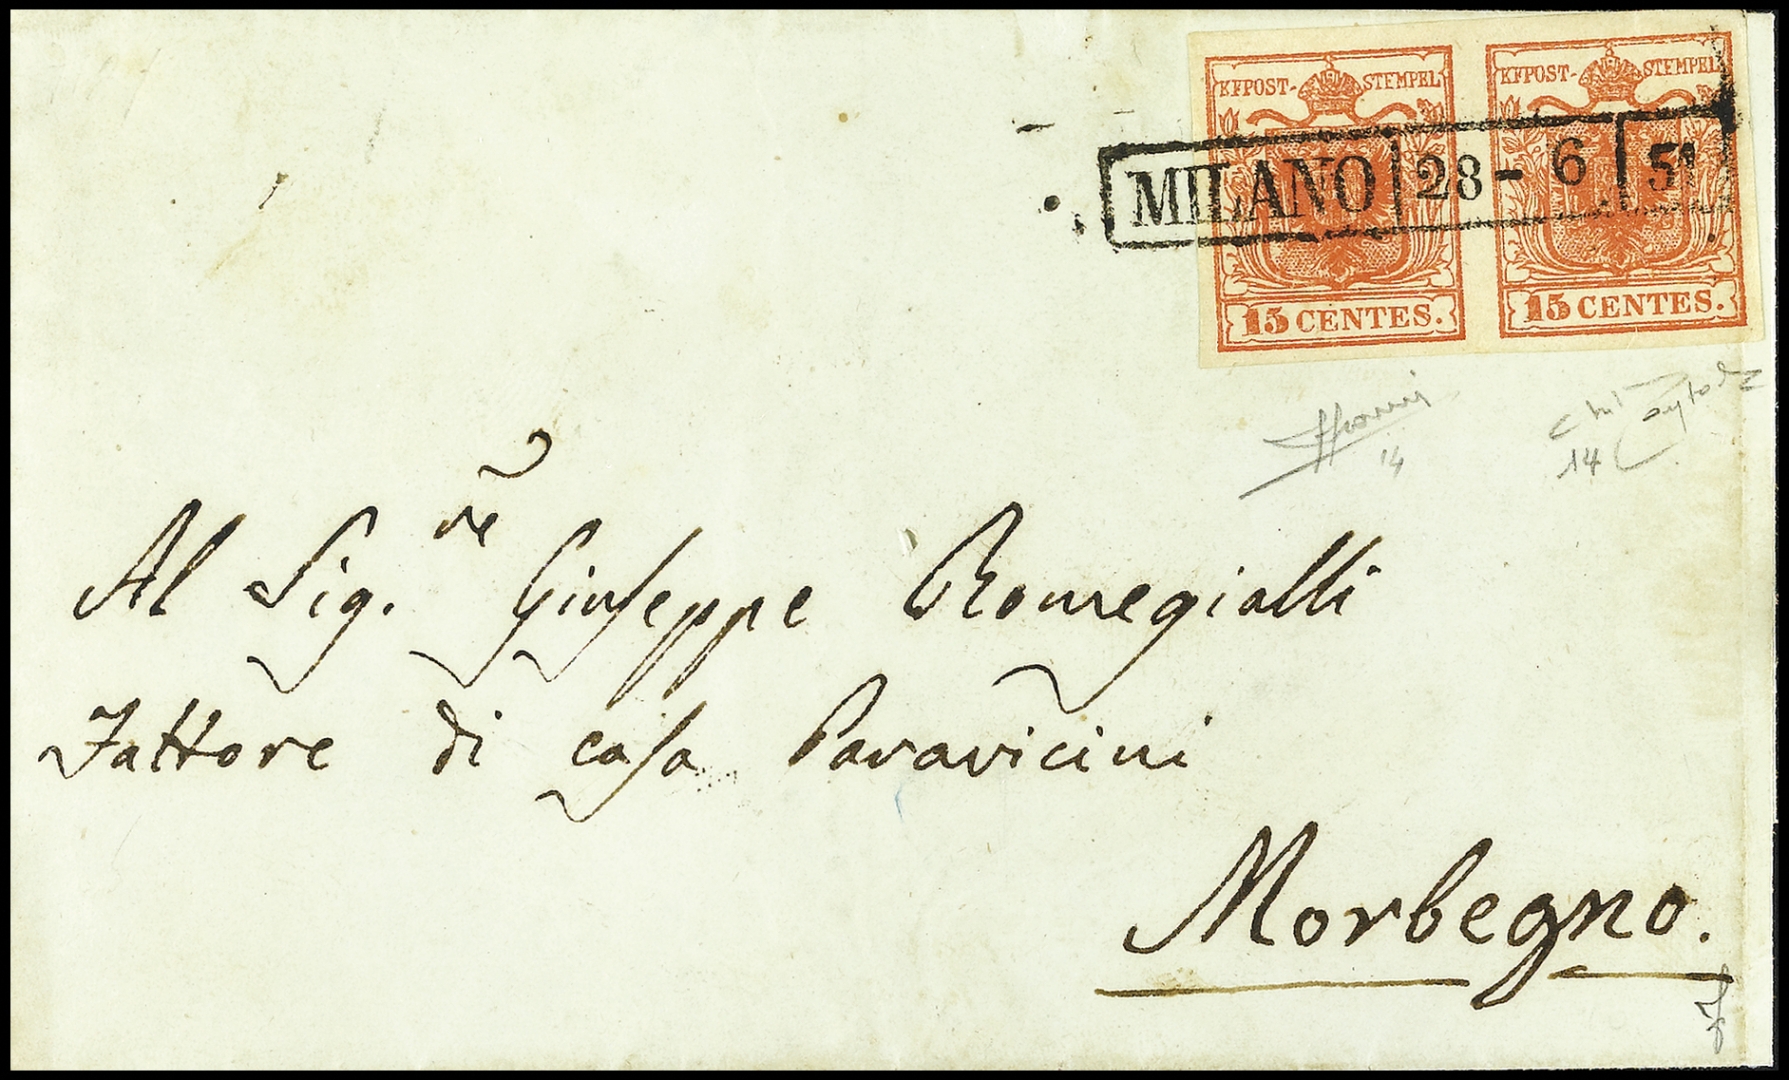 KKPOST- STEMPEL KKPOST- STEMPEL
MILANO 28 - 6 51
15 CENTES. 15 CENTES.
14 14
Al Sig.re Giuseppe Romegialli
Fattore di casa Paravicini
Morbegno.